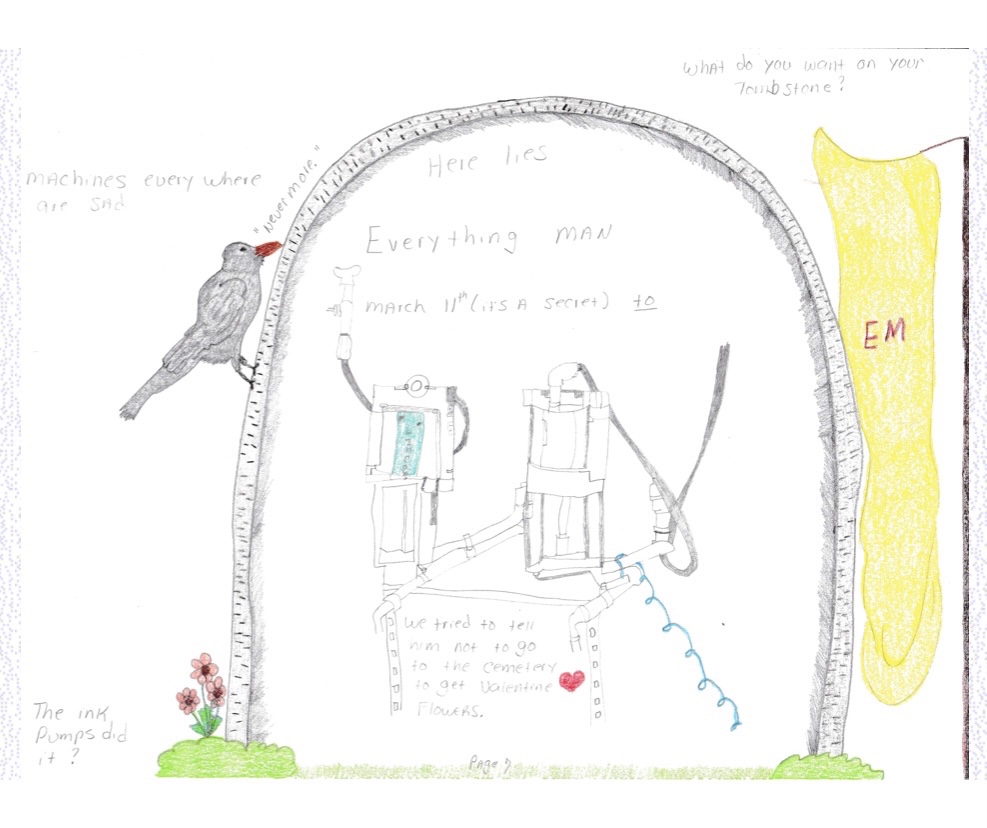 What do you want on your
Tombstone?
Machines every where
are sad
"Never more."
Here lies
Everything MAN
March 11th (it's A secret) to
EM
We tried to tell
him not to go
to the cemetery
to get Valentine
Flowers.
The ink
Pumps did
it?
Page